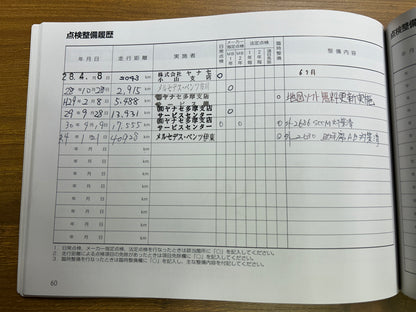 点検整備履歴
年月日 走行距離 実施者 日常点検 メーカー指定点検 法定点検 臨時整備 整備内容
MB1年 MB2年 1年毎 2年毎
28.4月8日 2043km 株式会社ヤナセ 小山支店 ○
28年10月28日 2,915km メルセデス・ベンツ ○
H29年2月8日 5.488km ㈱ヤナセ多摩支店 地図ソフト無料更新実施
29年9月28日 13,431km ㈱ヤナセ多摩支店 サービスセンター ○
30年4月19日 17,555km ㈱ヤナセ多摩支店 サービスセンター ○ ○
40928km メルセデス・ベンツ伊東
年月日 km
年月日 km
年月日 km
年月日 km
年月日 km
年月日 km
1. 日常点検、メーカー指定点検、法定点検を行なったときは該当箇所に「○」を記入してください。
2. 走行距離による点検項目の免除があったときは項目免除欄に「○」を記入してください。
3. 臨時整備を行なったときは臨時整備欄に「○」を記入し、主な整備内容を付記してください。
60